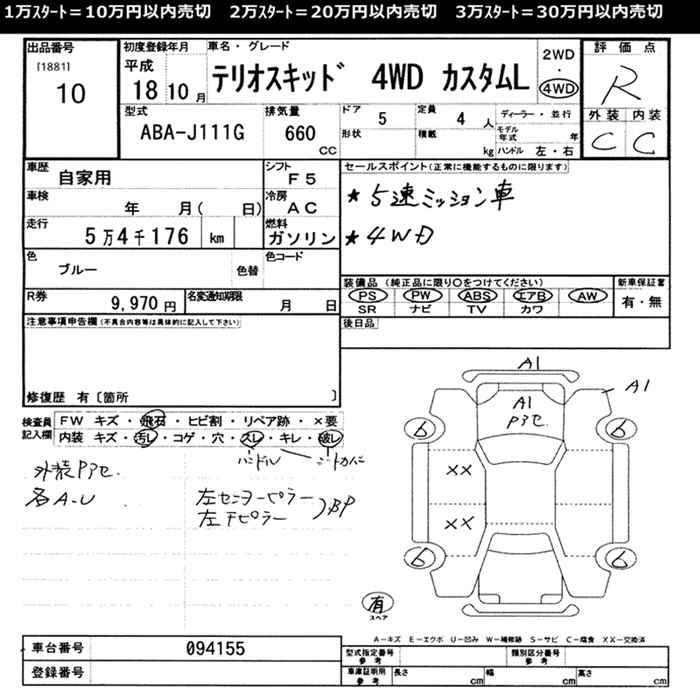 1万ｽﾀｰﾄ＝10万円以内売切　2万ｽﾀｰﾄ＝20万円以内売切　3万ｽﾀｰﾄ＝30万円以内売切
出品番号 初度登録年月 車名・グレード 2WD 評価点
[1881] 平成 テリオスキッド 4WD カスタムL ・ R
10 18年 10月 4WD 外装 内装
型式 排気量 ドア 5 定員 4人 ディーラー・並行 C C
ABA-J111G 660 CC 形状 積載 kg モデル年式 年
ハンドル 左・右
車歴 自家用 シフト F5 セールスポイント(正常に機能するものに限ります)
車検 年 月( 日) 冷房 AC ★ 5速ミッション車
走行 5万4千176 km 燃料 ガソリン ★ 4WD
色 ブルー 色替 色コード 装備品 (純正品に限り○をつけてください) 新車保証書
R券 9,970円 名変通知期限 月 日 PS PW ABS エアB AW 有・無
SR ナビ TV カワ
注意事項申告欄(不具合内容等は具体的に記入して下さい) 後日品
修復歴 有〔箇所 〕
検査員記入欄 FW キズ・飛石・ヒビ割・リペア跡・×要
内装 キズ・汚レ・コゲ・穴・スレ・キレ・破レ
ハンドル シートカバー
外装Pアセ
各A-U
左センターピラー
左下ピラー )BP
A1
A1
A1
Pアセ
6 6
XX
XX
6 6
有
スペア
A－キズ E－エクボ U－凹み W－補修跡 S－サビ C－腐食 XX－交換済
車台番号 094155 型式指定番号 参考 類別区分番号 参考
登録番号 車庫証明用 参考 長さ cm 幅 cm 高さ cm